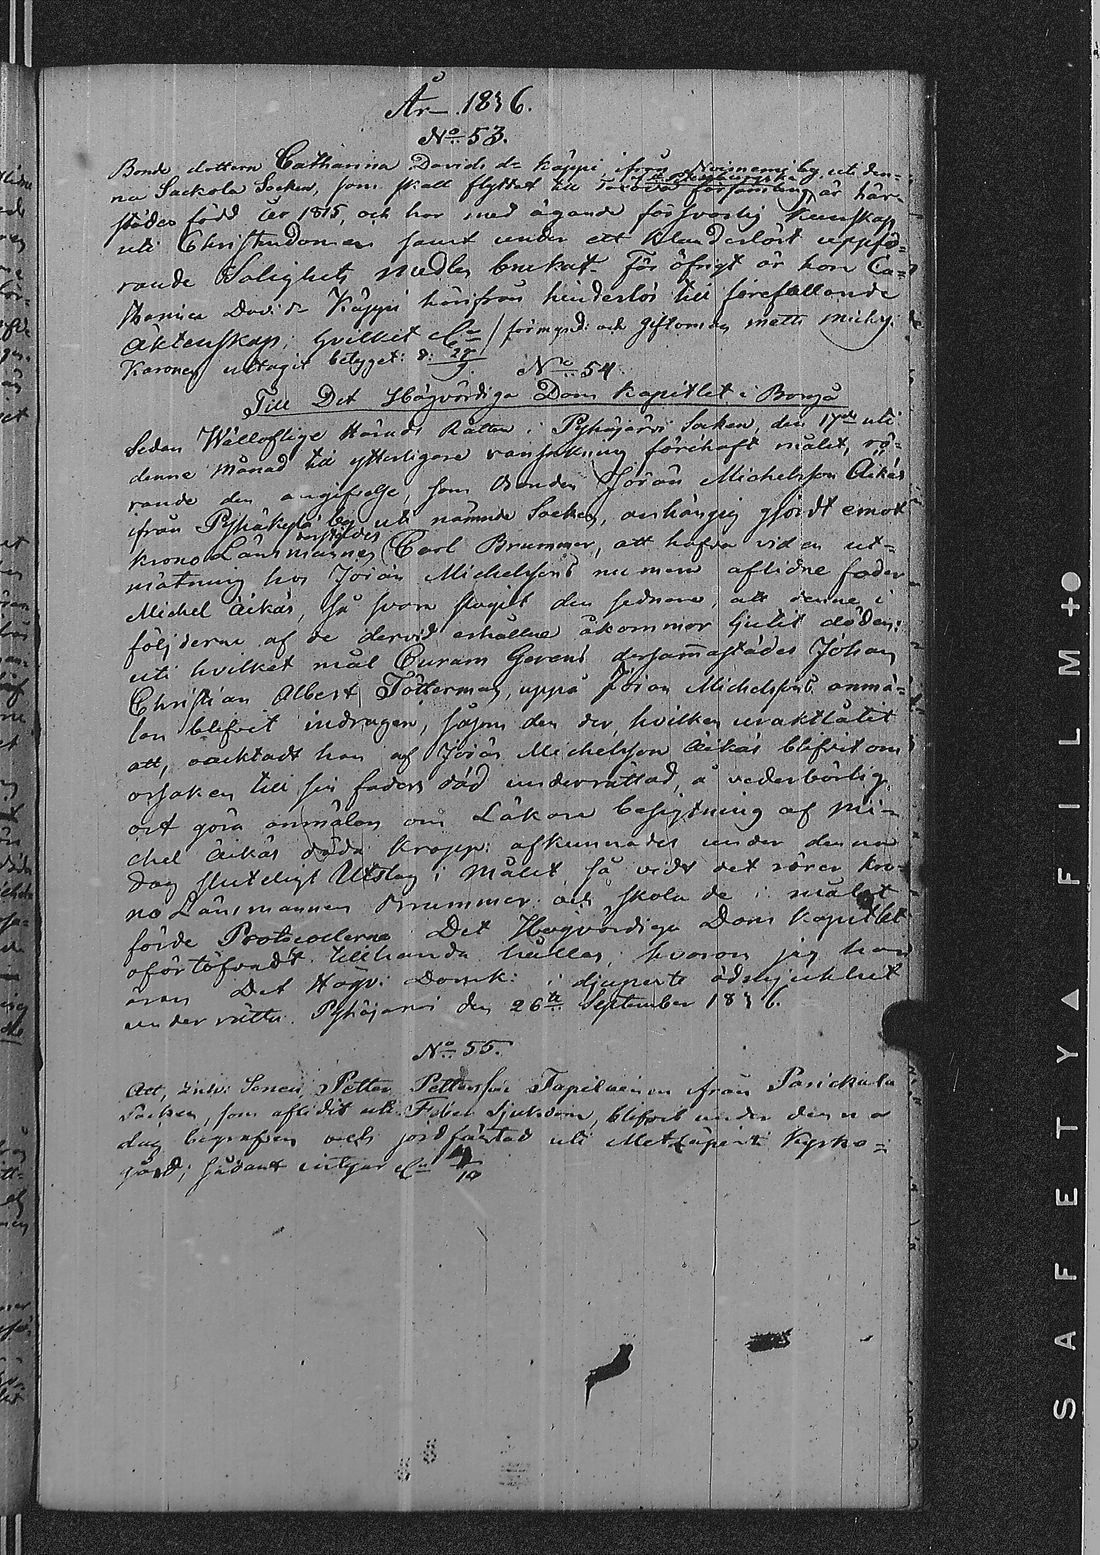 År 1836.
No 53.
Bonde dottern Catharina Davids dr Käppi ifrån Noisniemi by, uti den-
na Sackola Socken, som skall flyttat till församling, är här-
städes född år 1815, och har med ägande försvarlig kunskap
uti Christendomen samt under ett klanderlöst uppfö-
rande Salighets medlen brukat. För öfrigt är hon Ca-
tharina Davids Käppi härifrån hinderlös till förefallande
Äktenskap; hvilket förmynd: och Giftoman Matts Mich:
Karonen uttagit betyget: d: 28/9
No 54.
Till Det Högvördiga Dom Kapitlet i Borgå
Sedan Wälloflige Härads Rätten i Pyhäjärvi Socken, den 17de uti
denne månad till ytterligare ransakning förehaft målet, rö-
rande den angifvelse, som Bonden Jöran Michelsson Äikäs
ifrån Pyhäkylä by uti nämnde Socken, anhängig gjordt emot
krono Länsmannen derstädes Carl Brummer, att hafva vid en ut-
mätning hos Jöran Michelssons numera aflidne fader
Michel Äikäs, så svårt slagit den sednare, att denne i
följderne af de dervid erhållne åkommor ljutit döden:
uti hvilket mål Curam Gerens dersammastädes Johan
Christian Albert Tötterman, uppå Jöran Michelssons anmä-
lan blifvit indragen, såsom den der, hvilken uraktlåtit
att, oacktadt han af Jöran Michelsson Äikäs blifvit om
orsaken till sin faders död underrättad, å vederbörlig
ort göra anmälan om Läkare besigtning af Mi-
chel Äikäs döda kropp: afkunnades under denna
dag sluteligt Utslag i målet så vidt det rörer kro-
no Länsmannen Brummer och skola de i målet
förde Protocollerne Det Högvördiga Dom Kapitlet
oförtöfvadt tillhanda hållas, hvarom jag har
äran Det Högv: Domk: i djupaste ödmjukhet
underrätta. Pyhäjärvi den 26te September 1836.
No 55.
Att, Sonen Petter Pettersson Tapilainen ifrån Parickala
Socken, som aflidit uti Feber Sjukdom, blifvit under denna
dag begrafven och jordfästad uti Metzäpirti Kyrko-
gård; sådant intygar 4/10
S A F E T Y ▲ F I L M +●